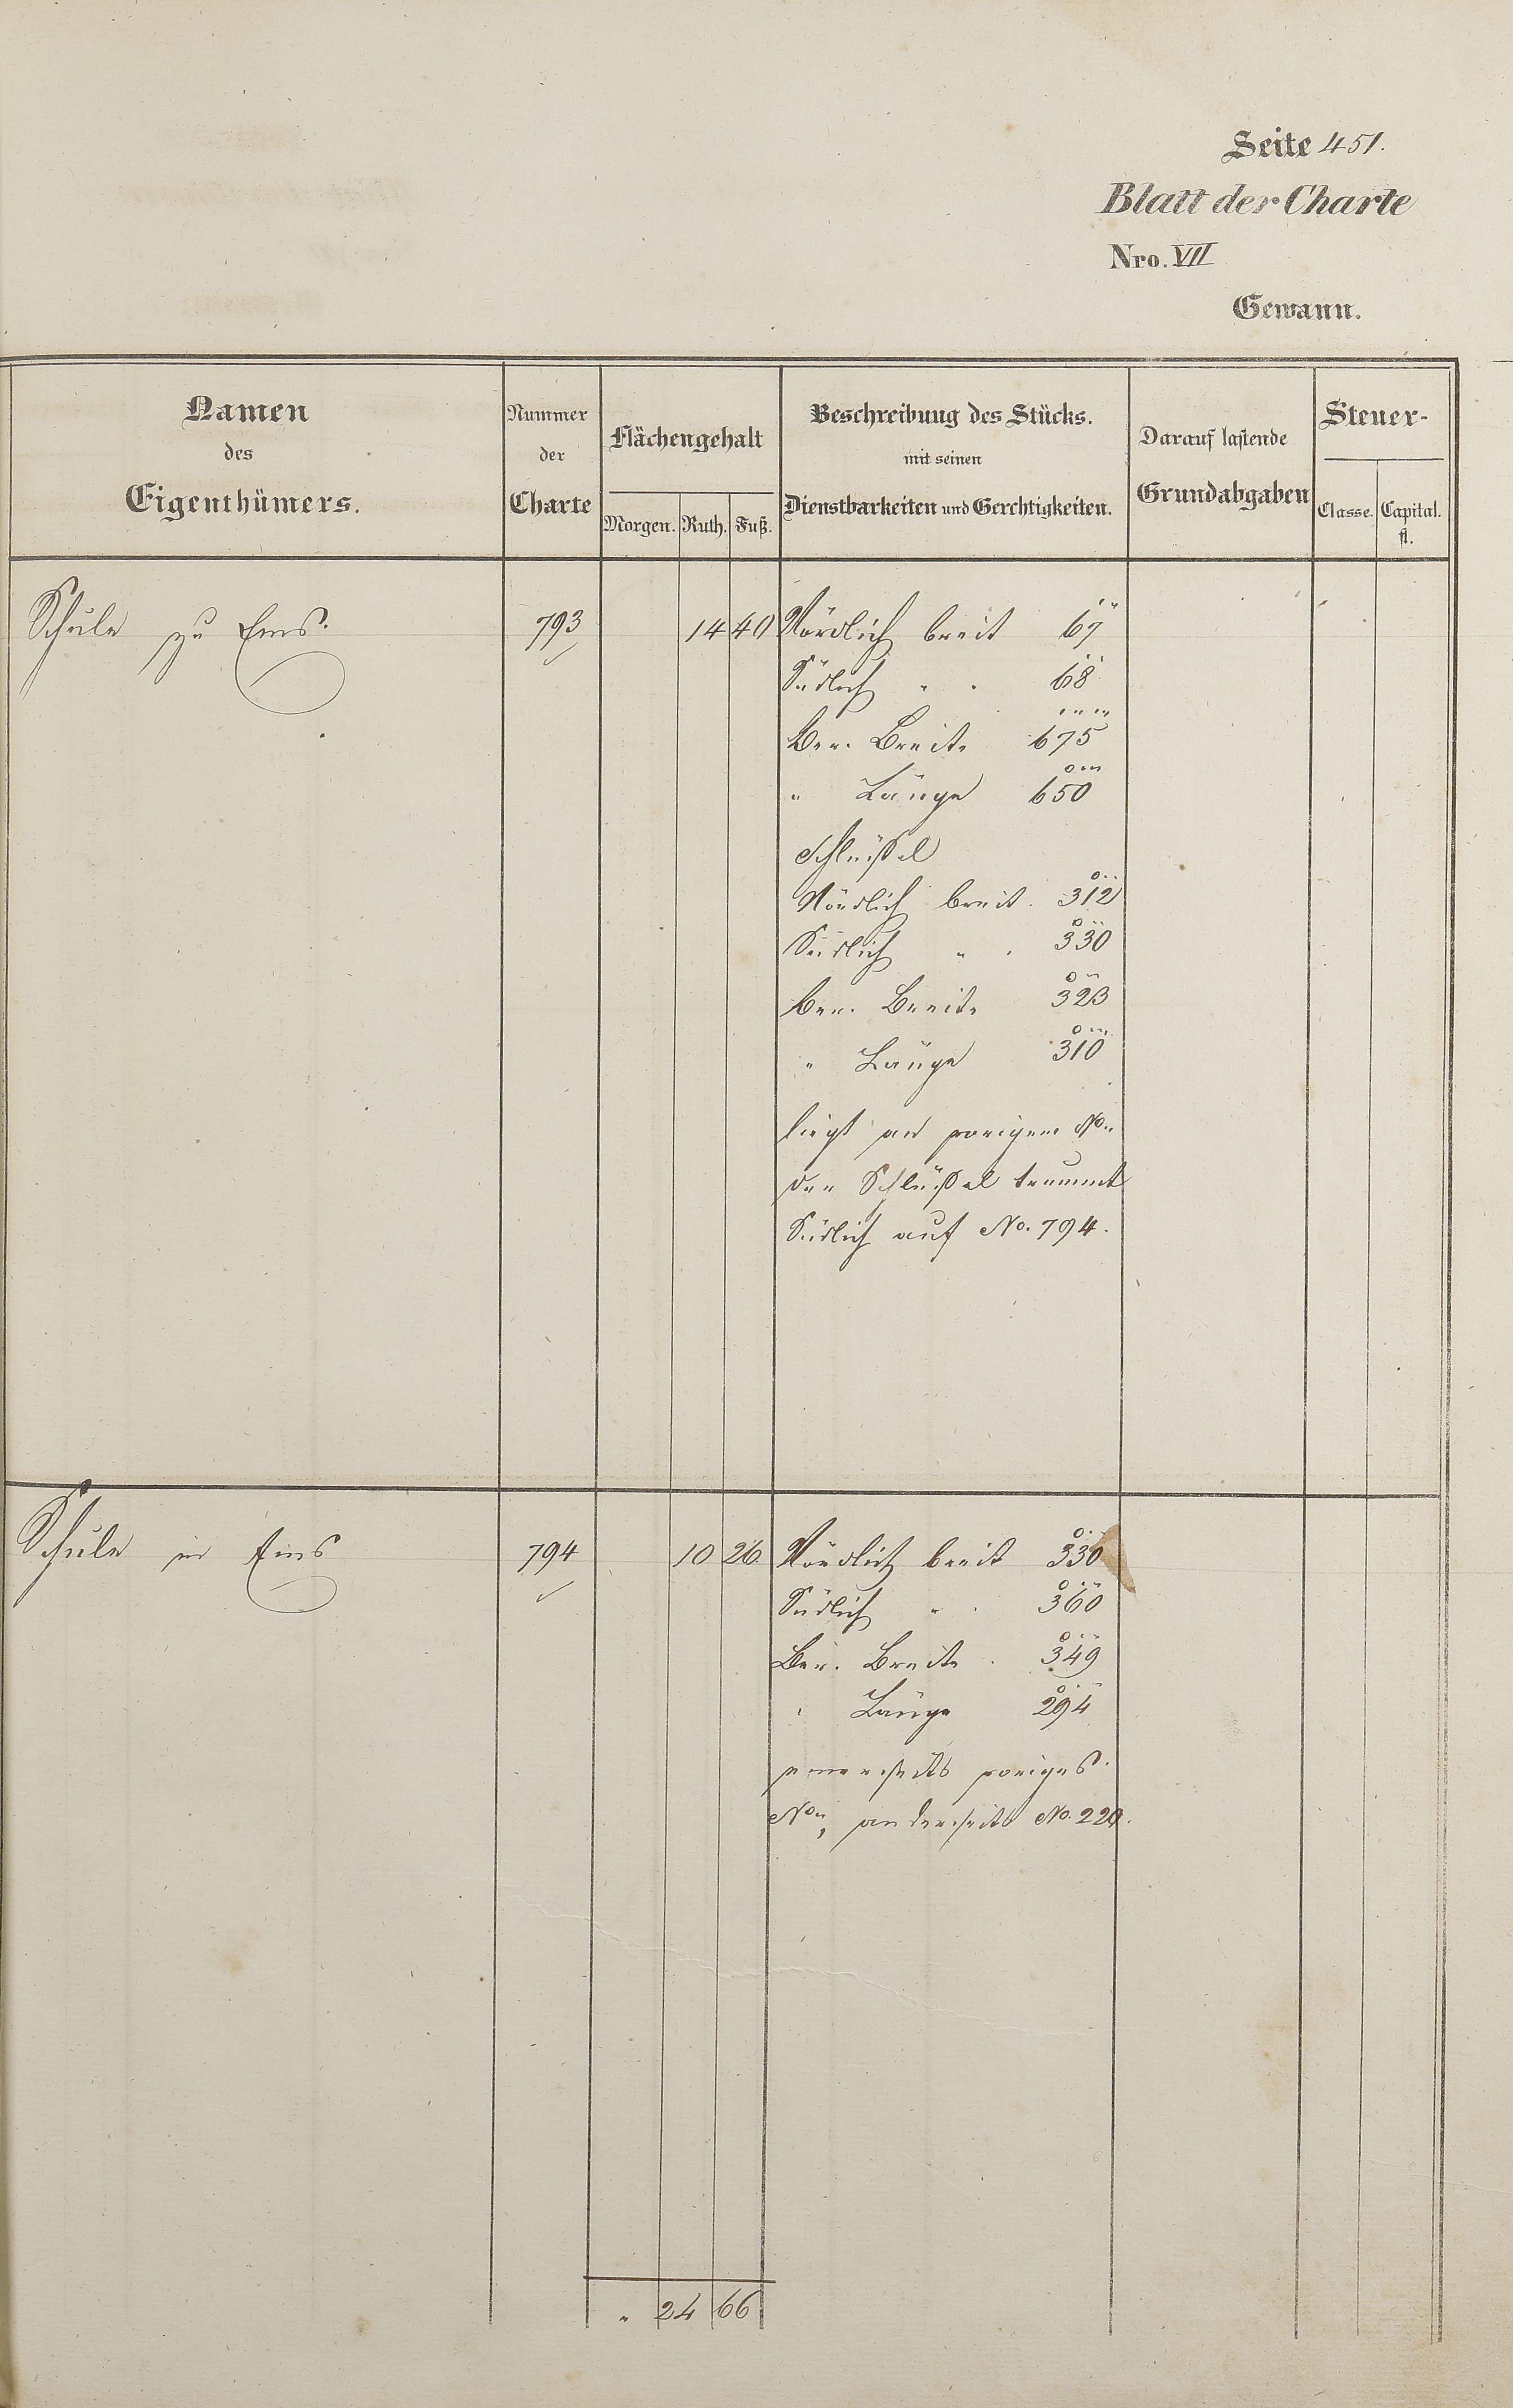 Seite 451.
Blatt der Charte
Nro. VII
Gewann.
Namen
des
Eigenthümers.
Nummer
der
Charte
Flächengehalt
Morgen. Ruth. Fuß.
Beschreibung des Stücks.
mit seinen
Dienstbarkeiten und Gerechtigkeiten.
Darauf lastende
Grundabgaben
Steuer-
Classe. Capital.
fl.
Schule zu Ems. 793 14 40 Nördlich breit 67
Südlich " . 68
Ber. Breite 675
" Länge 650
Schlüßel
Nördlich breit. 312
Südlich " . 330
Ber. Breite 323
" Länge 310
liegt an vorigem No.
der Schlüßel
Südlich auf No. 794.
Schule in Ems 794 10 26 Nördlich breit 330
Südlich " . 360
Ber. Breite . 349
" Länge 294
einerseits voriges
No, anderseits No. 220.
" 24 66